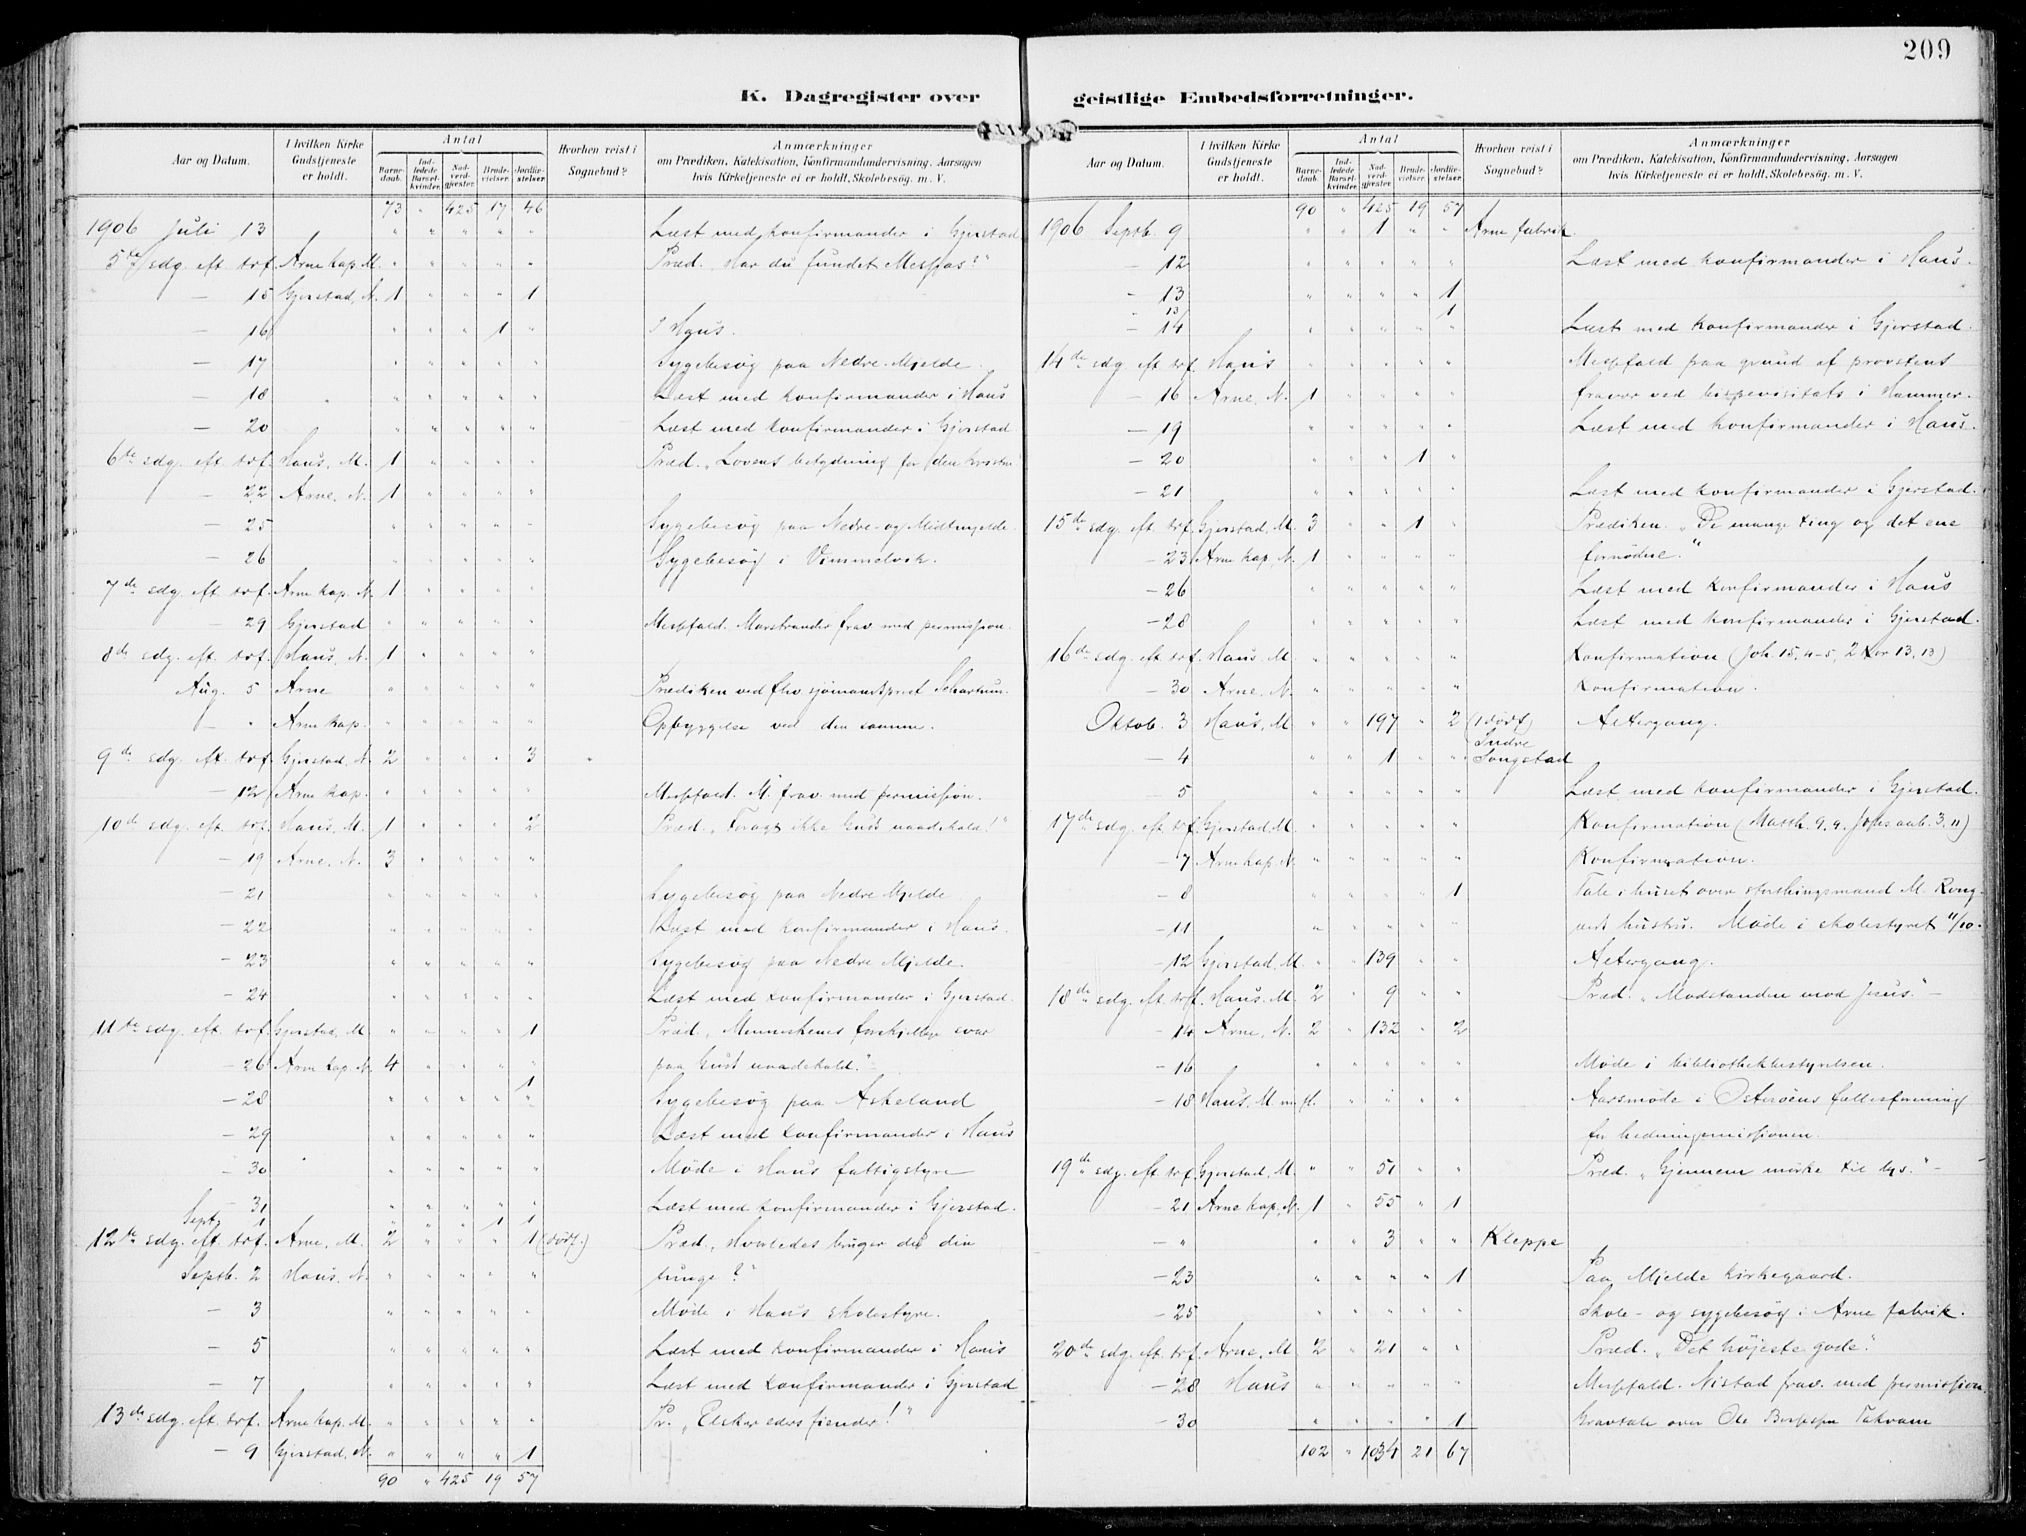 209
K. Dagregister over geistlige Embedsforretninger.
Aar og Datum. I hvilken Kirke Gudstjeneste er holdt. Antal Barnedaab. Indledede Barselkvinder. Nadverdgjester. Brudevielser. Jordfæstelser. Hvorhen reist i Sognebud? Anmærkninger om Prædiken, Katekisation, Konfirmandundervisning, Aarsagen hvis Kirketjeneste ei er holdt, Skolebesøg. m. V.
73 " 425 17 46
1906 Juli 13 " " " " " Læst med konfirmander i Gjerstad
5te sdg. eft. trf. Arne kap. M. " " " " " Præd. „Har du fundet Messias?"
— 15 Gjerstad, N. 1 " " " 1
— 16 " " " 1 " I Haus.
— 17 " " " " " Sygebesøg paa Nedre Mjelde.
— 18 " " " " " Læst med konfirmander i Haus
— 20 " " " " " Læst med konfirmander i Gjerstad
6te sdg. eft. trf. Haus, M. 1 " " " " Præd. „Lovens betydning for den kristne"
— 22 Arne, N. 1 " " " "
— 25 " " " " " Sygebesøg paa Nedre- og Midtmjelde.
— 26 " " " " " Sygebesøg i Vimmelvik.
7de sdg. eft. trf. Arne kap. N. 1 " " " "
— 29 Gjerstad " " " " " Messfald. Marstrander frav. med permission.
8de sdg. eft. trf. Haus, N. 1 " " " "
Aug. 5 Arne " " " " " Prædiken ved fhv. sjømandsprest Schartum.
— " Arne kap. " " " " " Opbyggelse ved den samme.
9de sdg. eft. trf. Gjerstad, N. 2 " " " 3
— 12 Arne kap. " " " " " Messfald. M. frav. med permission.
10de sdg. eft. trf. Haus, M. 1 " " " 2 Præd. „Foragt ikke Guds naadekald!"
— 19 Arne, N. 3 " " " "
— 21 " " " " " Sygebesøg paa Nedre Mjelde
— 22 " " " " " Læst med konfirmander i Haus.
— 23 " " " " " Sygebesøg paa Nedre Mjelde.
— 24 " " " " " Læst med konfirmander i Gjerstad.
11te sdg. eft. trf. Gjerstad, M. " " " " 1 Præd. „Menneskenes forskjellige svar
— 26 Arne kap. N. 4 " " " " paa Guds naadekald."
1
— 28 " " " " " Sygebesøg paa Askeland
— 29 " " " " " Læst med konfirmander i Haus
— 30 " " " " " Møde i Haus fattigstyre
— 31 " " " " " Læst med konfirmander i Gjerstad.
Sept. 1 " " " 1 1
12te sdg. eft. trf. Arne, M. 2 " " " 1 (dødf.) Præd. „Hvorledes bruger du din
Septb. 2 Haus, N. " " " " " tunge?"
— 3 " " " " " Møde i Haus skolestyre.
— 5 " " " " " Læst med konfirmander i Haus
— 7 " " " " " Læst med konfirmander i Gjerstad
13de sdg. eft. trf. Arne kap. M. " " " " " Pr. „Elsker eders fiender!"
— 9 Gjerstad, N. " " " " 1
90 " 425 19 57
Aar og Datum. I hvilken Kirke Gudstjeneste er holdt. Antal Barnedaab. Indledede Barselkvinder. Nadverdgjester. Brudevielser. Jordfæstelser. Hvorhen reist i Sognebud? Anmærkninger om Prædiken, Katekisation, Konfirmandundervisning, Aarsagen hvis Kirketjeneste ei er holdt, Skolebesøg. m. V.
90 " 425 19 57
1906 Septb. 9 " " 1 " " Arne fabrik.
— 12 " " " " " Læst med konfirmander i Haus.
— 13 " " " " 1
" 13 1
— 14 " " " " " Læst med konfirmander i Gjerstad.
14de sdg. eft. trf. Haus " " " " " Messfald paa grund af provstens
— 16 Arne, N. 1 " " " " fravær ved bispevisitats i Hammer.
— 19 " " " " " Læst med konfirmander i Haus.
— 20 " " " 1 "
— 21 " " " " " Læst med konfirmander i Gjerstad.
15de sdg. eft. trf. Gjerstad, M. 3 " " 1 " Prædiken. „De mange ting og det ene
— 23 Arne kap. N. 1 " " " " fornødne."
— 26 " " " " " Læst med konfirmander i Haus
— 28 " " " " " Læst med konfirmander i Gjerstad.
16de sdg. eft. trf. Haus. M. " " " " " Konfirmation (Joh. 15, 4-5, 2 Kor 13, 13)
— 30 Arne, N. " " " " " Konfirmation.
Oktob. 3 Haus, M. " " 197 " 2 (1 dødf) Altergang.
— 4 " " 1 " " Indre Songstad
— 5 " " " " " Læst med konfirmander i Gjerstad.
17de sdg. eft. trf. Gjerstad M. " " " " " Konfirmation (Matth. 9, 9. Johs aab. 3, 11)
— 7 Arne kap. N. " " " " " Konfirmation.
— 8 " " " " 1 Tale i huset over storthingsmand M. Rong-
— 11 " " " " " veds hustru. Møde i skolestyret 11/10.
— 12 Gjerstad, M. " " 139 " " Altergang.
18de sdg. eft. trf. Haus. M. 2 " 9 " " Præd. „Modstanden mod Jesus." —
— 14 Arne, N. 2 " 132 " 2
— 16 " " " " " Møde i bibliothekbestyrelsen.
— 18 Haus. M. m. fl. " " " " " Aarsmøde i Osterøens fællesforening
for hedningemissionen.
19de sdg. eft. trf. Gjerstad, M. " " 51 " " Præd. „Gjennem mørke til lys." —
— 21 Arne kap. N. 1 " 55 " 1
— " " " 3 " " Kleppe
— 23 " " " " 1 Paa Mjelde kirkegaard.
— 25 " " " " " Skole- og sygebesøg i Arne fabrik.
20de sdg. eft. trf. Arne, M. 2 " 21 " " Præd. „Det højeste gode."
— 28 Haus " " " " " Messfald. Nistad frav. med permission.
— 30 " " " " 1 Gravtale over Ole Takvam
102 " 1034 21 67